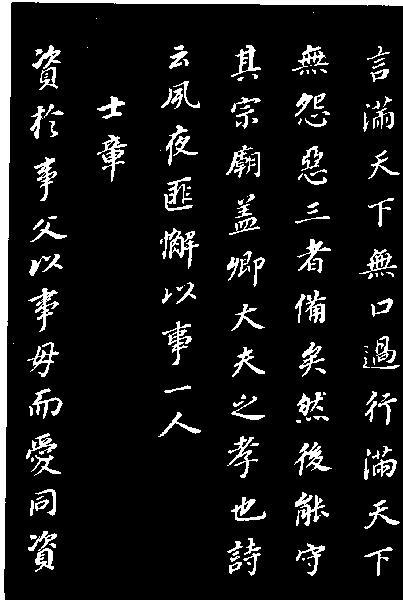 言滿天下無口過行滿天下
無怨惡三者備矣然後能守
其宗廟盖卿大夫之孝也詩
云夙夜匪懈以事一人
士章
資於事父以事母而愛同資